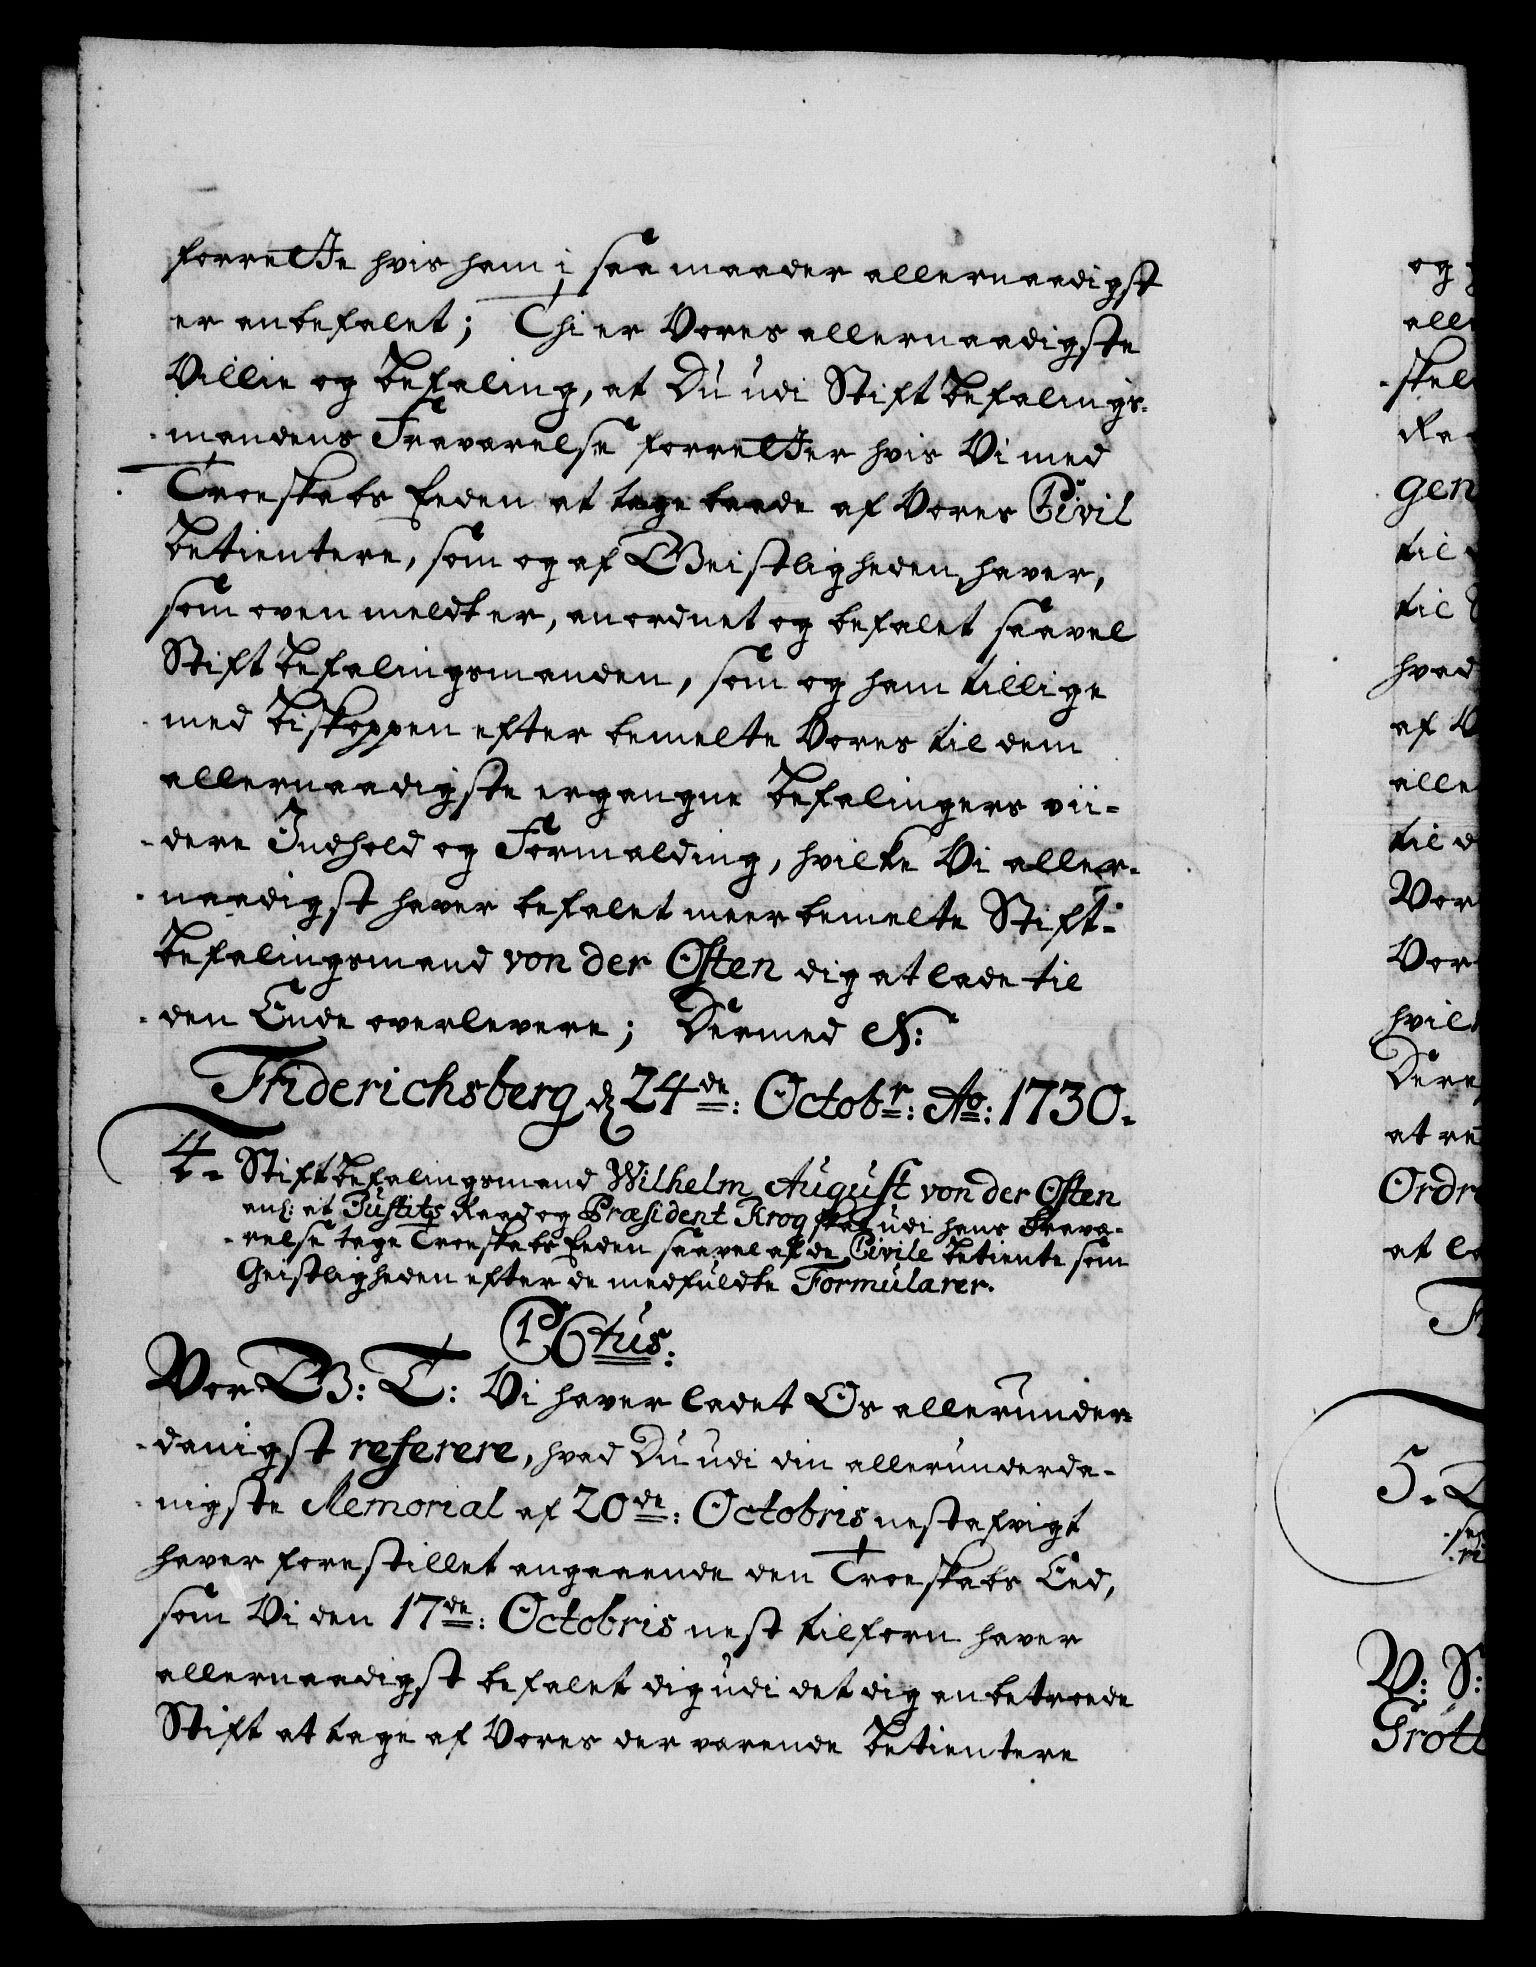 forrette hvis ham i saa maader allernaadigst
er anbefalet; Thi er Vores allernaadigste
Villie og Befaling, at Du udi Stift Befalings-
-mandens Fraværelse forretter hvis Vi med
Troeskabs Eeden at tage baade af Vores Civil
Betientere, som og af Geistligheden haver,
som oven meldt er, anordnet og befalet saavel
Stift Befalingsmanden, som og ham tillige
-med Biskoppen efter bemelte Vores til dem
allernaadigste ergangne Befalingers vii-
-dere Indhold og Formelding, hvilke Vi aller-
-naadigst haver befalet meerbemelte Stift-
Befalingsmand von der Osten dig at lade til
-den Ende overlevere; Dermed &:
Friderichsberg d. 24de: Octobr: Ao: 1730.
4. Stift Befalingsmand Wilhelm August von der Osten
anl: at Justits Raad og Præsident Krog skal udi hans Fravæ-
-relse tage Troeskabs Eeden saavel af de Civile Betiente som
Geistligheden efter de medfuldte Formularer.
C 6tus:
Vor G: T: Vi haver ladet Os allerunder-
-danigst referere, hvad Du udi din allerunderda-
-nigste Memorial af 20de: Octobris nest afvigt
haver forestillet angaaende den Troeskabs Eed,
som Vi den 17de: Octobris nest tilforn haver
allernaadigst befalet dig udi det dig anbetroede
Stift at tage af Vores der værende Betientere
og
alle
-skel
Ra
gen
til
til
hvad
af V
alle
til d
Vor
Vor
hvil
Dere
at re
Ordre
at la
5.
V: S:
Grott